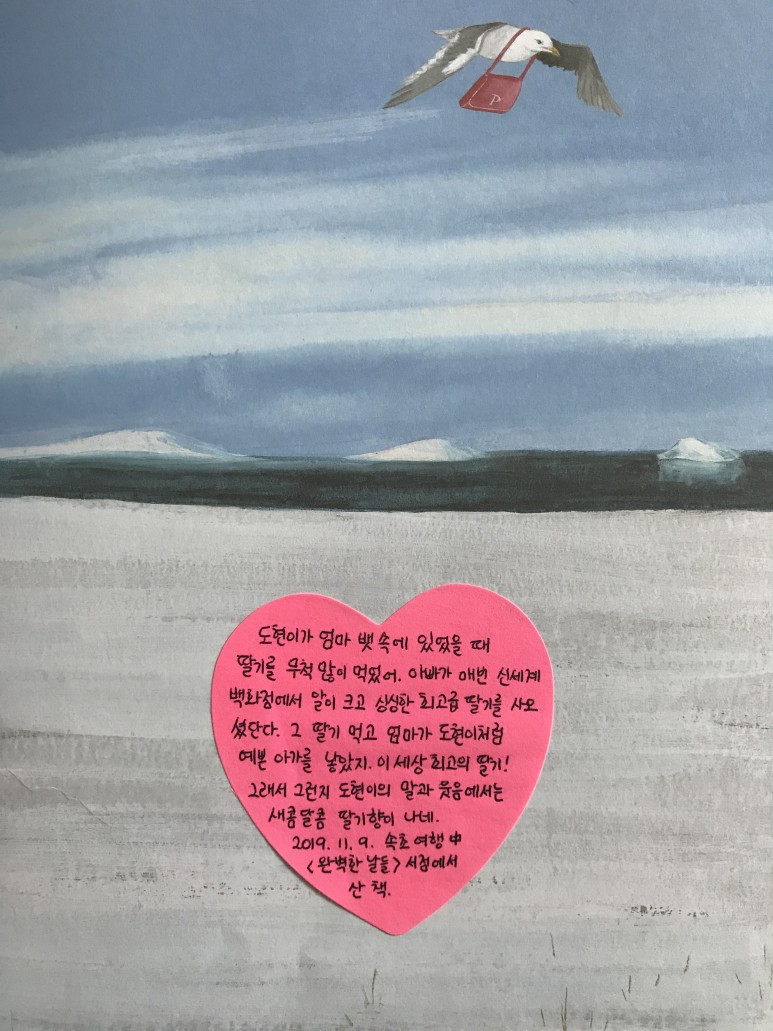 P
도현이가 엄마 뱃속에 있었을 때
딸기를 무척 많이 먹었어. 아빠가 매번 신세계
백화점에서 알이 크고 싱싱한 최고급 딸기를 사오
셨단다. 그 딸기 먹고 엄마가 도현이처럼
예쁜 아가를 낳았지. 이 세상 최고의 딸기!
그래서 그런지 도현이의 말과 웃음에서는
새콤달콤 딸기향이 나네.
2019. 11. 9. 속초 여행 中
<완벽한 날들> 서점에서
산 책.